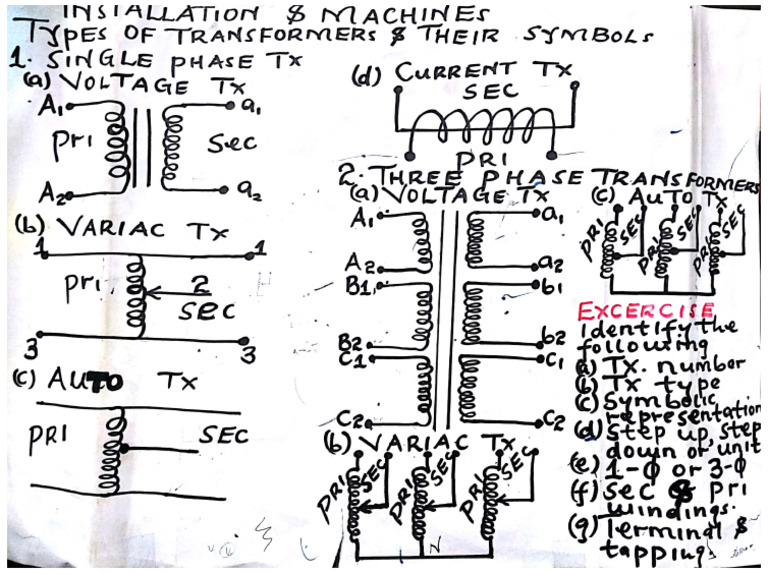 INSTALLATION & MACHINES
TYPES OF TRANSFORMERS & THEIR SYMBOLS
1. SINGLE PHASE TX
(a) VOLTAGE TX
A1 a1
pri sec
A2 a2
(b) VARIAC TX
1 1
pri 2
sec
3 3
(c) AUTO TX
PRI SEC
(d) CURRENT TX
SEC
PRI
2. THREE PHASE TRANSFORMERS
(a) VOLTAGE TX
A1 a1
A2 a2
B1 b1
B2 b2
C1 C1
C2 C2
(b) VARIAC TX
PRI SEC PRI SEC PRI SEC
N
(c) AUTO TX
PRI SEC PRI SEC PRI SEC
EXCERCISE
Identify the
following
(a) Tx. number
(b) Tx type
(c) Symbolic
representation
(d) Step up, step
down or unit
(e) 1-Φ or 3-Φ
(f) Sec & pri
windings.
(g) Terminal &
tapping